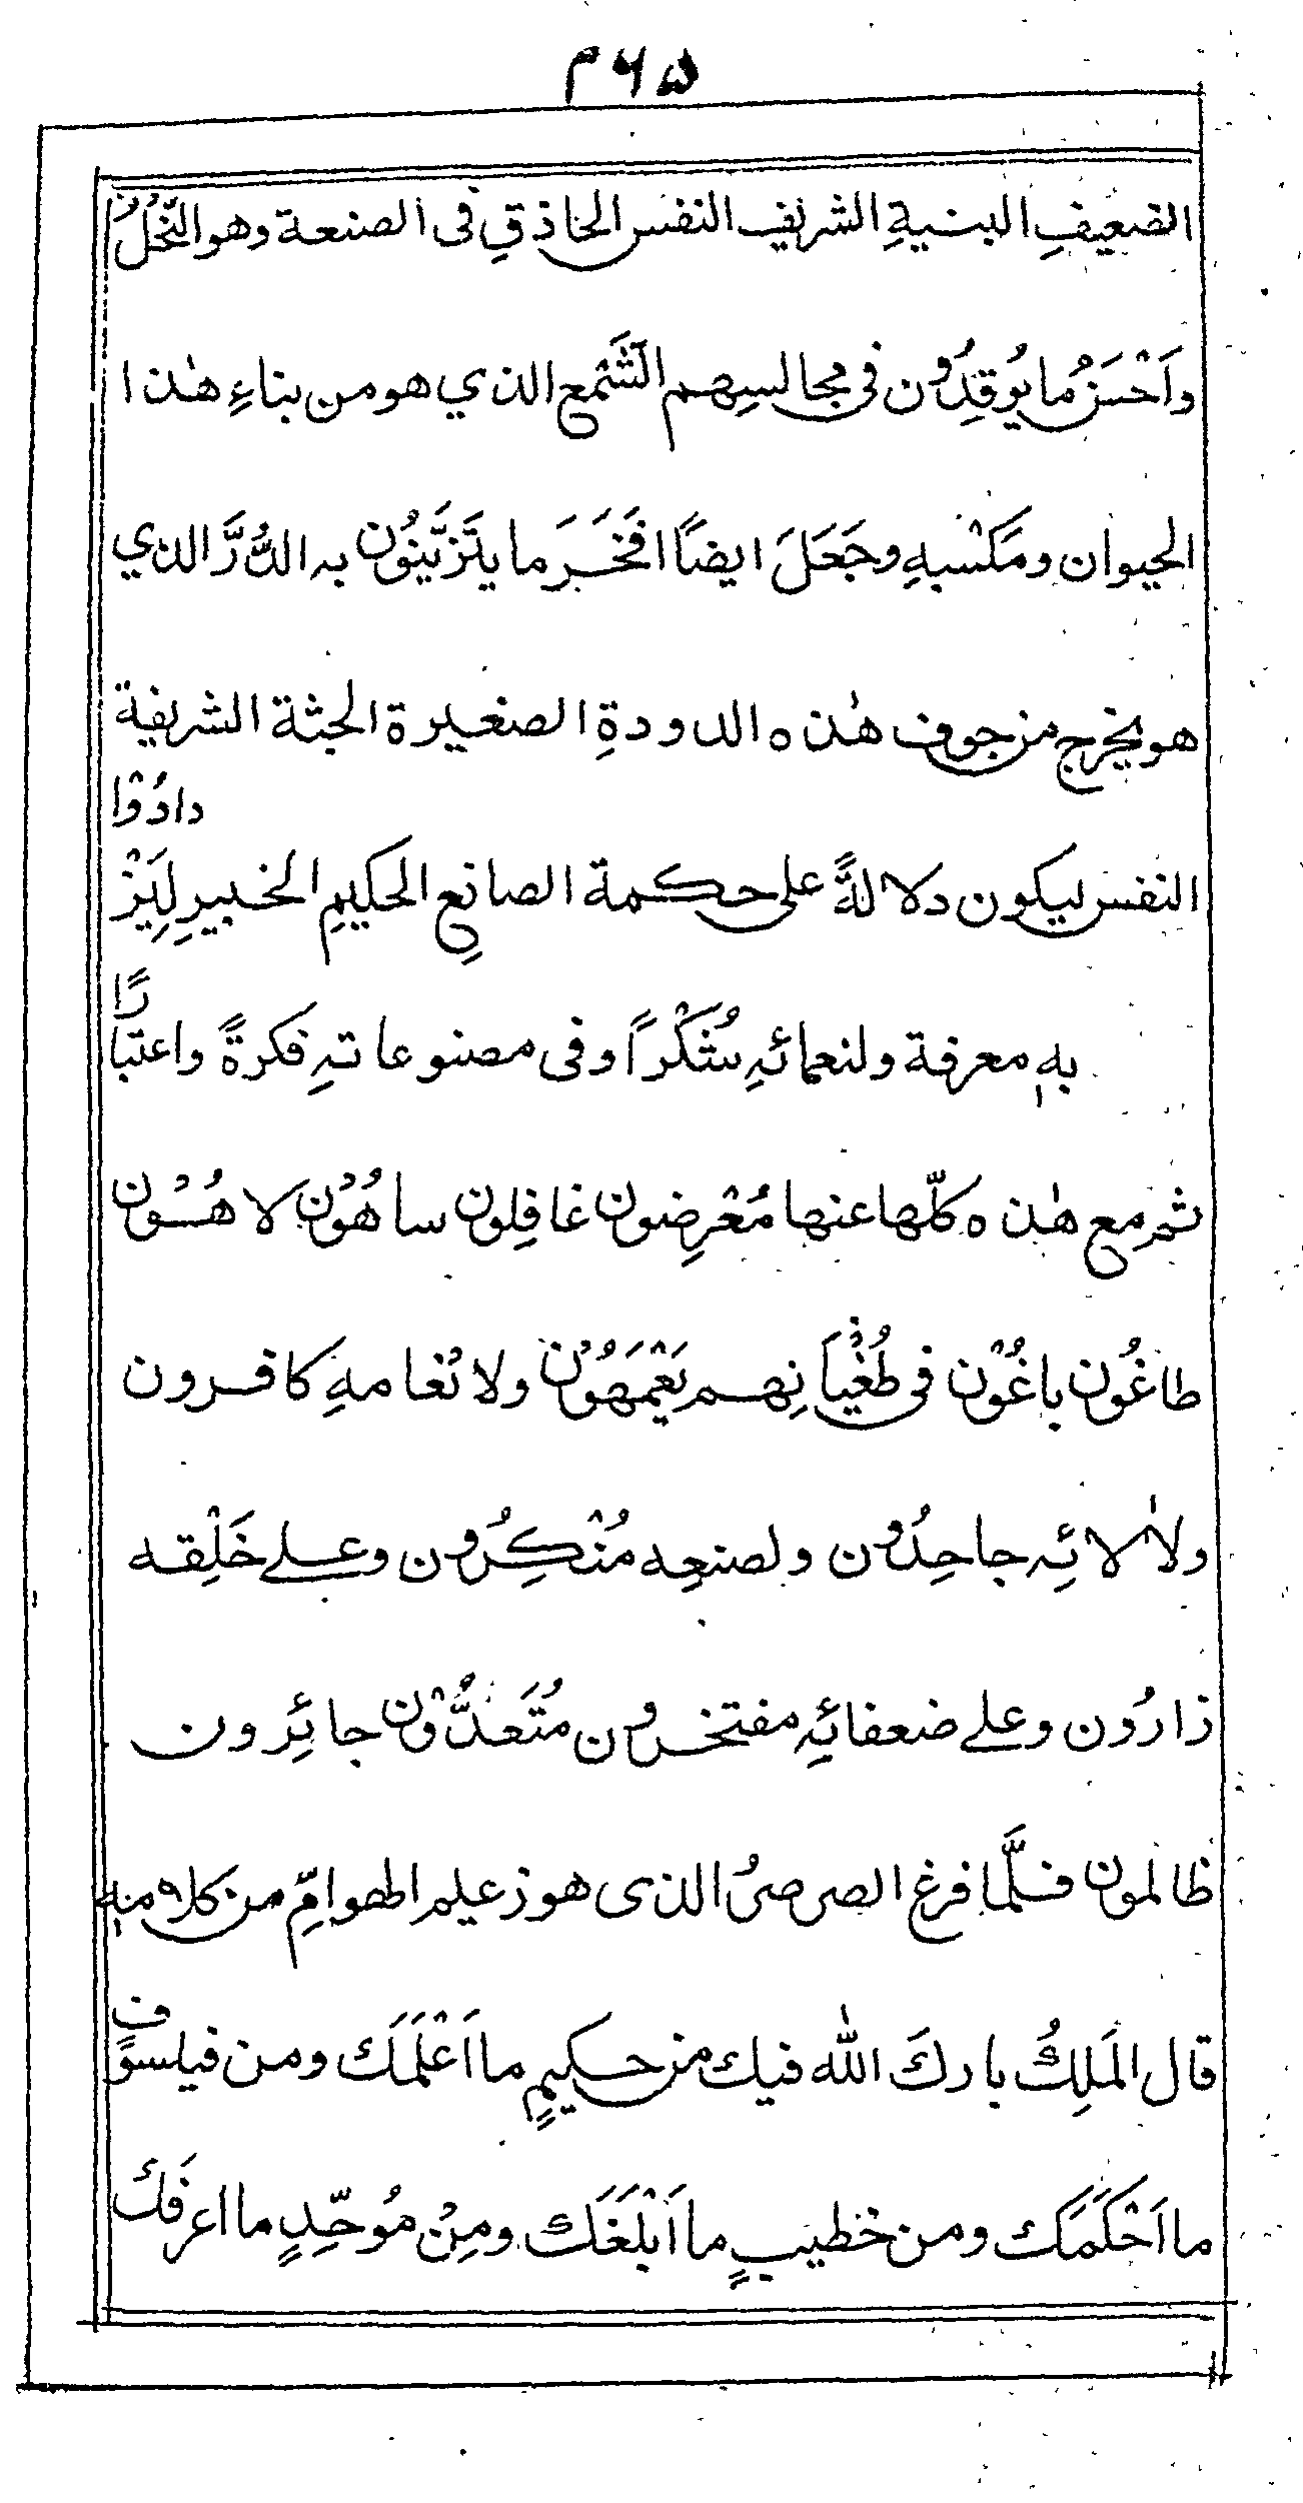 ۳۶۵
الضعيفِ البنيةِ الشريفِ النفس الحاذقِ فى الصنعة وهو النّحلُ
واَحْسَنُ ما يُوقِدُون فى مجالسِهم الشَّمع الذي هو من بناءِ هٰذا
الحيوان ومَكسْبهِ وجَعَلَ ايضاً افَخَرَ ما يتَزَيَّنُون به الدُّرَّ الذي
هو يخرج من جوف هٰذه الدودةِ الصغيرة الجثة الشريفة
النفس ليكون دلالةً على حكمة الصانعِ الحكيمِ الخبيرِ لِيَزْدادُوْا
بهٖ معرفة ولنعمائهِ شُكْراً وفى مصنوعاتهِ فكرةً واعتبارًا
ثم مع هٰذه كلّها عنها مُعْرِضون غافِلون ساهُوْن لاهُوْن
طاغُون باغُوْن فى طُغْيَانِهم يَعْمَهُوْن ولانعامهِ كافرون
ولاٰلائهِ جاحِدُون ولصنعِه مُنْكِرُون وعلے خَلْقِه
زارُون وعلے ضعفائهِ مفتخرُون مُتَعَدُّوْن جائِرون
ظالمون فلَمَّا فرغ الصرصرُ الذى هو زعيم الهوامِّ من كلامهٖ
قال المَلِكُ باركَ اللّٰه فيك من حكيمٍ ما اَعْلَمَك ومن فيلسوفٍ
ما اَحْكَمَك ومن خطيبٍ ما اَبْلَغَك ومِنْ مُوحّدٍ ما اعرفَك